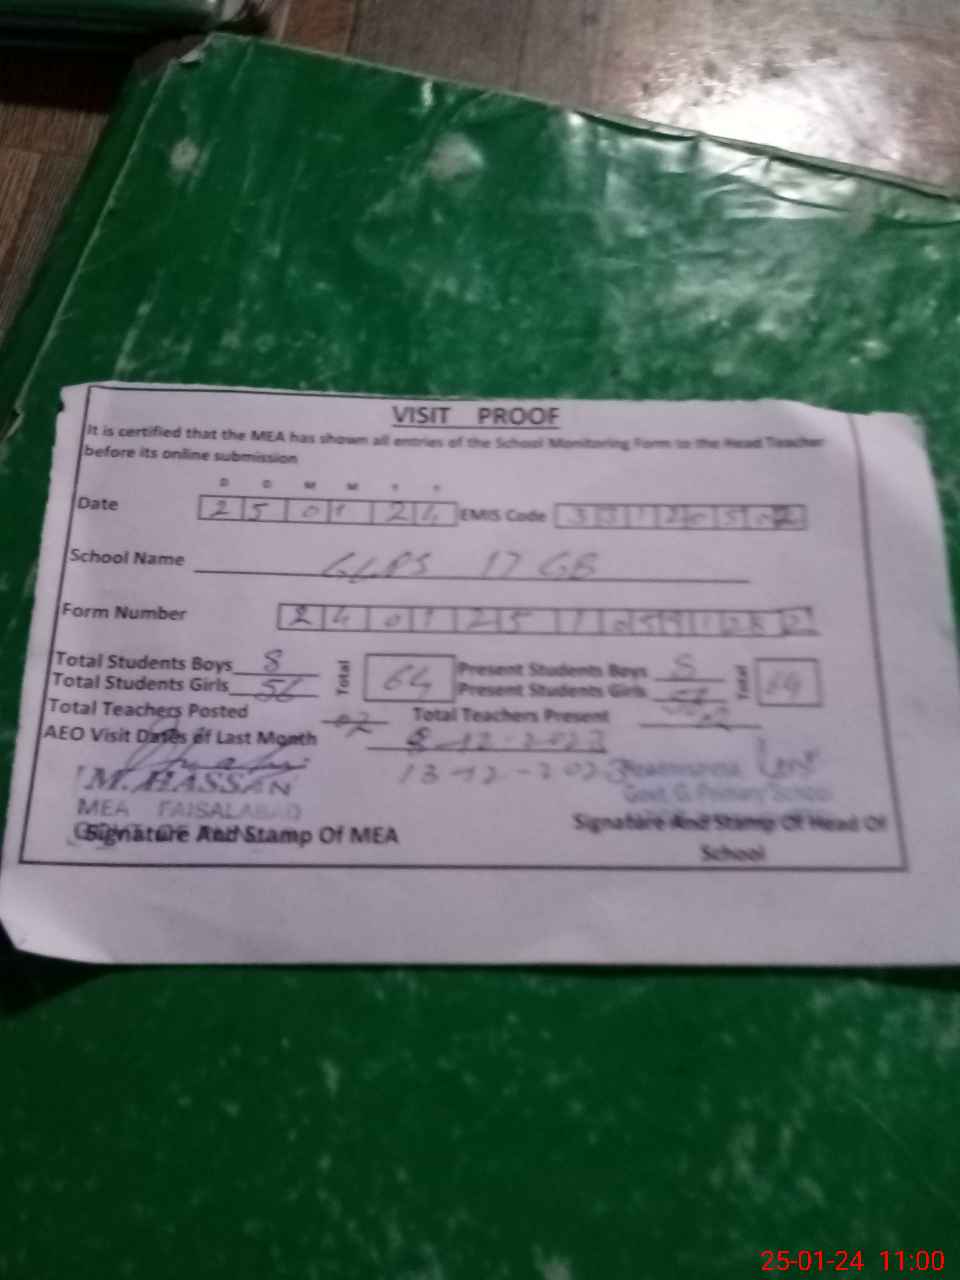 VISIT PROOF
It is certified that the MEA has shown all entries of the School Monitoring Form to the Head Teacher
before its online submission
D D M M Y Y
Date 25 01 24 EMIS Code 33120502
School Name GLPS 17 GB
Form Number 240125105
Total Students Boys 8 Total 64 Present Students Boys 8 Total 64
Total Students Girls 56 Present Students Girls
Total Teachers Posted 02 Total Teachers Present 02
AEO Visit Dates of Last Month 8-12-2023
13-12-2023
M. HASSAN
MEA FAISALABAD
Govt. G. Primary School
Signature And Stamp Of MEA
Signature And Stamp Of Head Of
School
25-01-24 11:00